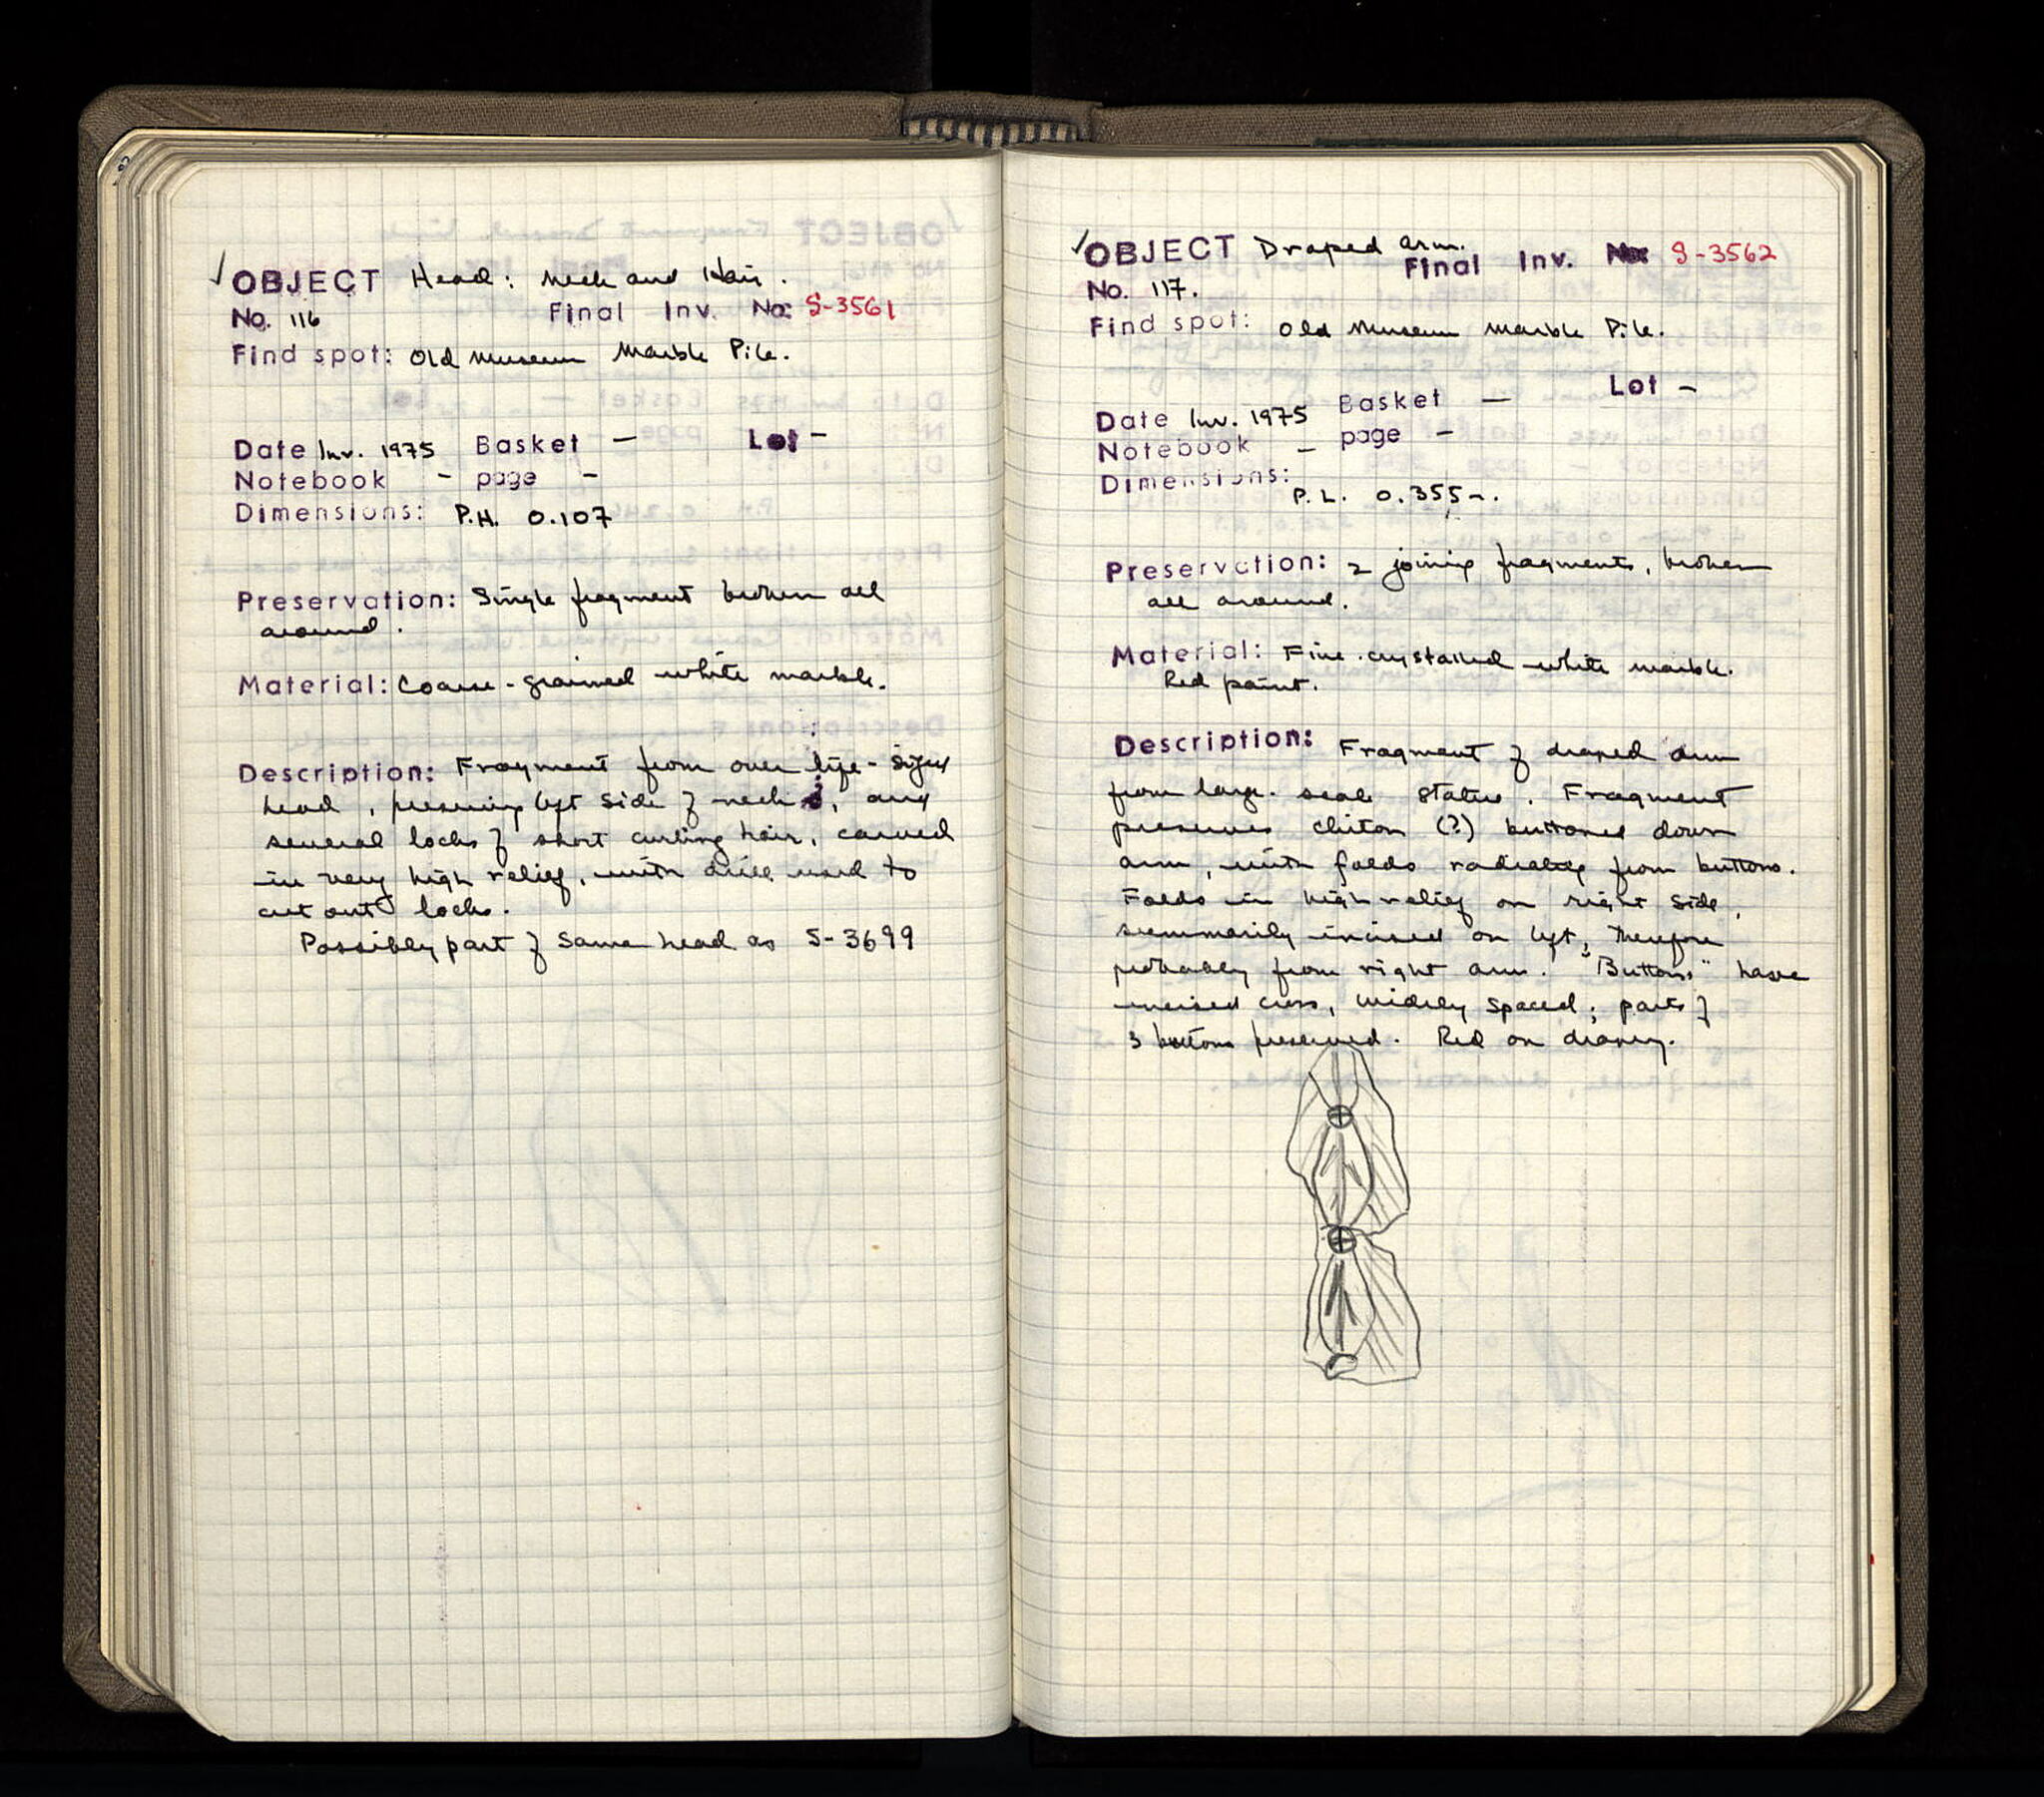 ✓OBJECT Head: Neck and Hair.
No. 116 Final Inv. No: S-3561
Find spot: Old Museum Marble Pile.
Date Inv. 1975 Basket — Lot -
Notebook - page -
Dimensions: P.H. 0.107
Preservation: Single fragment broken all
around.
Material: Coarse-grained white marble.
Description: Fragment from over life-sized
head, preserving left side of neck, and
several locks of short curling hair, carved
in very high relief, with drill used to
cut out locks.
Possibly part of same head as S-3699
✓OBJECT Draped arm.
Final Inv. No: S-3562
No. 117.
Find spot: Old Museum Marble Pile.
Date Inv. 1975 Basket — Lot -
Notebook - page -
Dimensions:
P.L. 0.355-.
Preservation: 2 joining fragments, broken
all around.
Material: Fine crystalled white marble.
Red paint.
Description: Fragment of draped arm
from large-scale statue. Fragment
preserves chiton (?) buttoned down
arm, with folds radiating from buttons.
Folds in high relief on right side,
summarily incised on left, therefore
probably from right arm. "Buttons" have
incised cross, widely spaced; parts of
3 buttons preserved. Red on drapery.